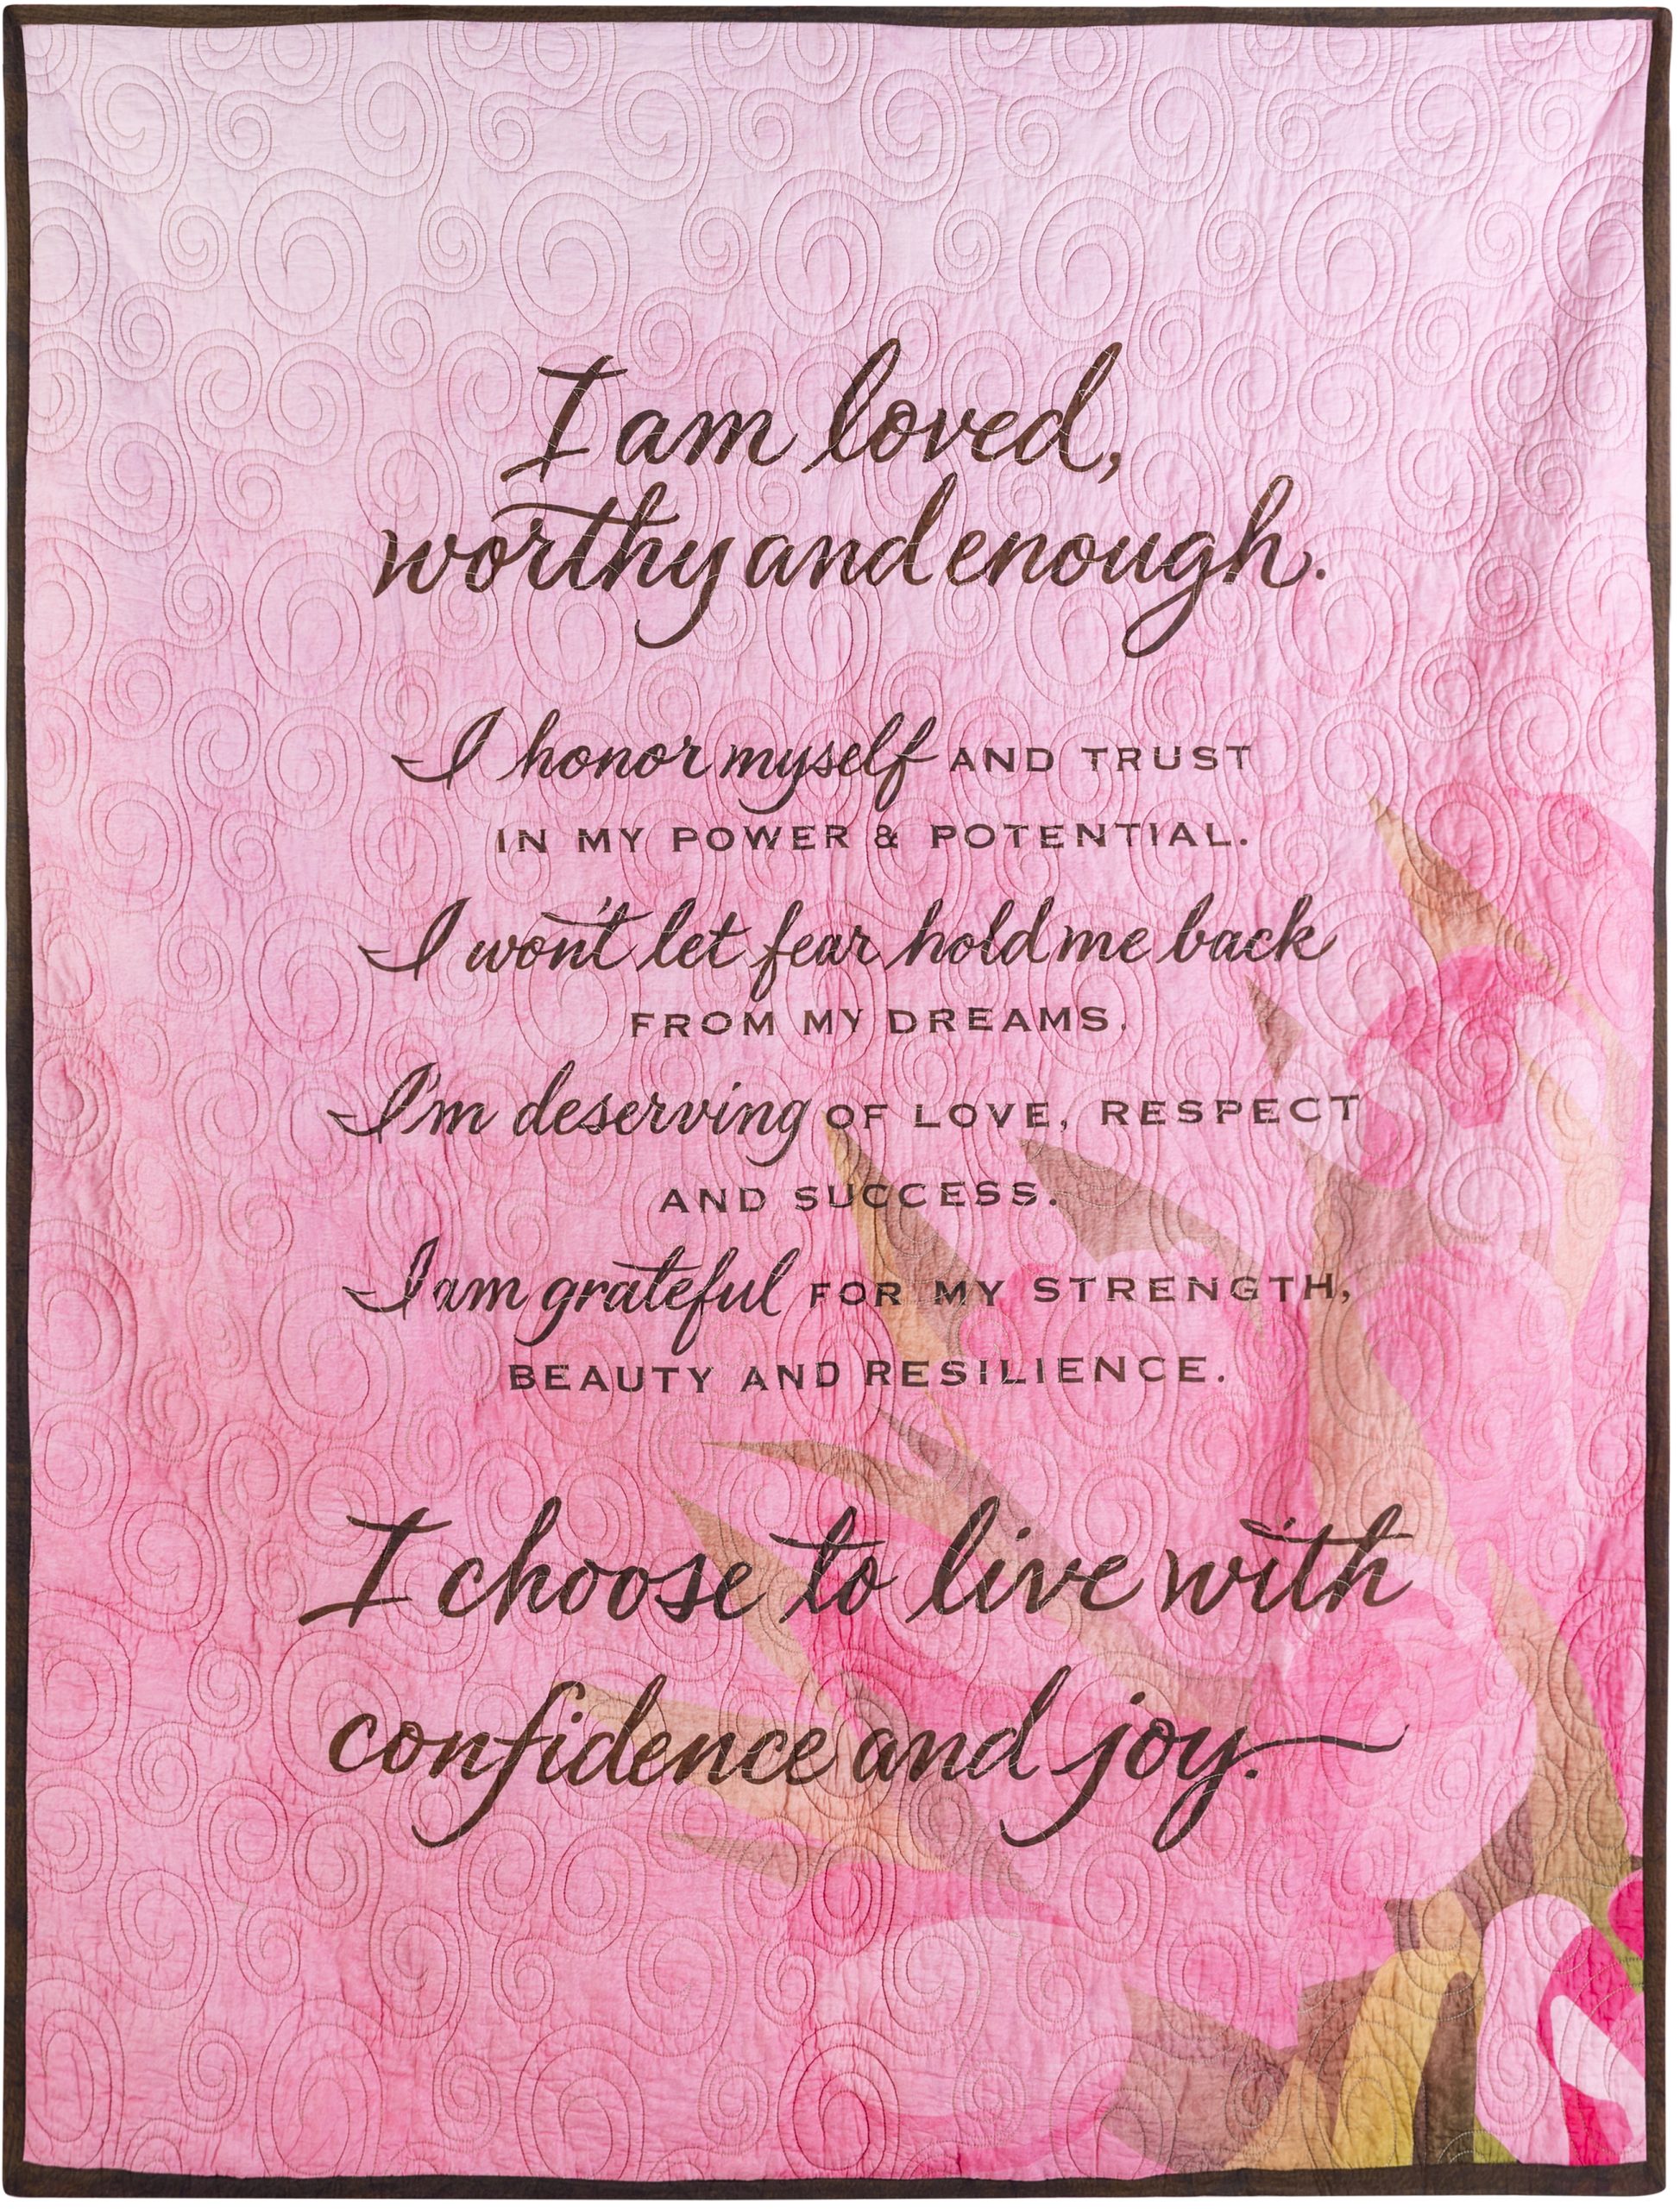 I am loved,
worthy and enough.
I honor myself AND TRUST
IN MY POWER & POTENTIAL.
I won't let fear hold me back
FROM MY DREAMS.
I'm deserving OF LOVE, RESPECT
AND SUCCESS.
I am grateful FOR MY STRENGTH,
BEAUTY AND RESILIENCE.
I choose to live with
confidence and joy.